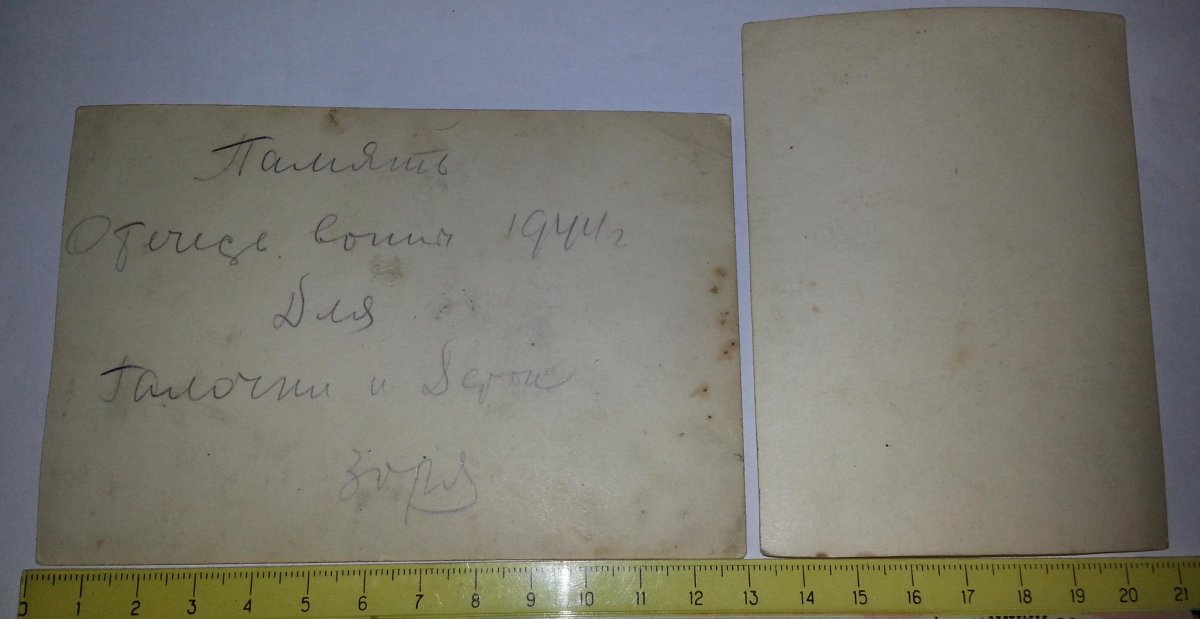 Память
Отечес войны 1944г
Для
Галочки и
Зоря
0 1 2 3 4 5 6 7 8 9 10 11 12 13 14 15 16 17 18 19 20 21